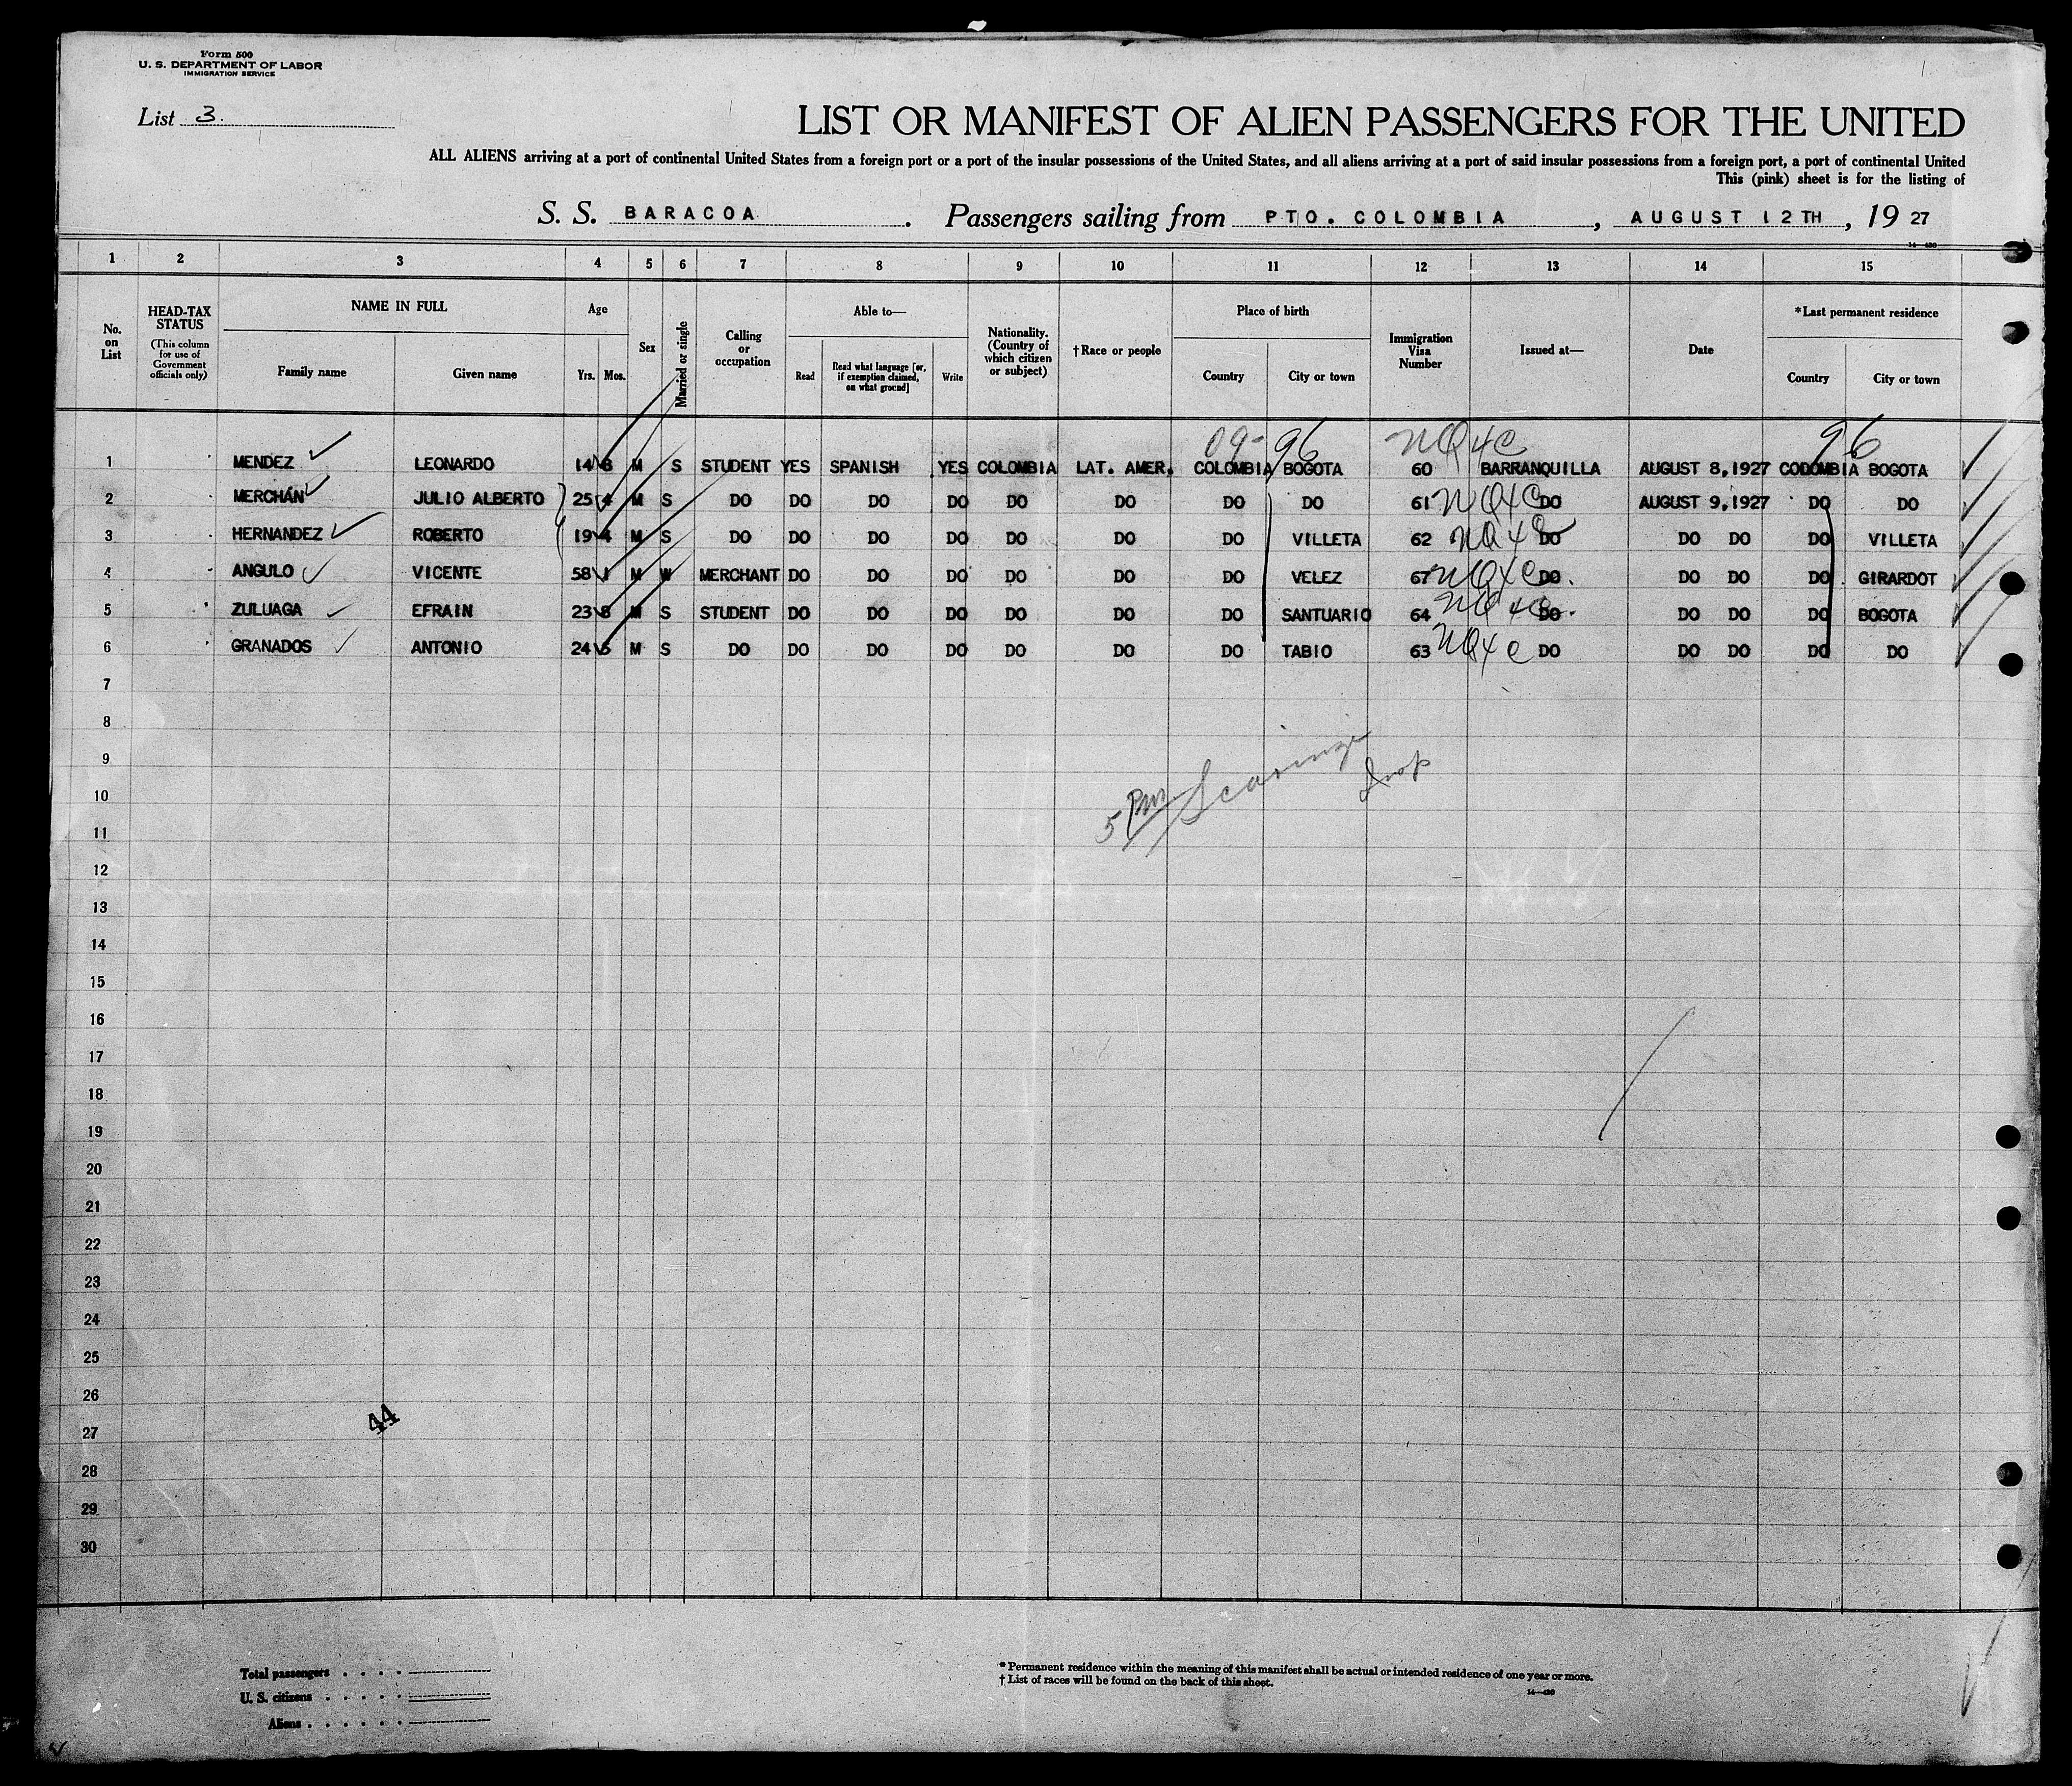 Form 500
U. S. DEPARTMENT OF LABOR
IMMIGRATION SERVICE
List 3.
LIST OR MANIFEST OF ALIEN PASSENGERS FOR THE UNITED
ALL ALIENS arriving at a port of continental United States from a foreign port or a port of the insular possessions of the United States, and all aliens arriving at a port of said insular possessions from a foreign port, a port of continental United
This (pink) sheet is for the listing of
S. S. BARACOA. Passengers sailing from PTO. COLOMBIA, AUGUST 12TH, 19 27
1 2 3 4 5 6 7 8 9 10 11 12 13 14 15
No. on List
HEAD-TAX STATUS (This column for use of Government officials only)
NAME IN FULL
Family name Given name
Age
Yrs. Mos.
Sex
Married or single
Calling or occupation
Able to—
Read Read what language [or, if exemption claimed, on what ground] Write
Nationality. (Country of which citizen or subject)
†Race or people
Place of birth
Country City or town
Immigration Visa Number
Issued at—
Date
*Last permanent residence
Country City or town
09- 96 NQ4C 96
1 MENDEZ LEONARDO 14 8 M S STUDENT YES SPANISH YES COLOMBIA LAT. AMER. COLOMBIA BOGOTA 60 BARRANQUILLA AUGUST 8,1927 COLOMBIA BOGOTA
2 MERCHÁN JULIO ALBERTO 25 4 M S DO DO DO DO DO DO DO DO 61 NQ4C DO AUGUST 9,1927 DO DO
3 HERNANDEZ ROBERTO 19 4 M S DO DO DO DO DO DO DO VILLETA 62 NQ4C DO DO DO DO VILLETA
4 ANGULO VICENTE 58 1 M W MERCHANT DO DO DO DO DO DO VELEZ 67 NQ4C DO DO DO DO GIRARDOT
5 ZULUAGA EFRAIN 23 8 M S STUDENT DO DO DO DO DO DO SANTUARIO 64 NQ4C DO DO DO DO BOGOTA
6 GRANADOS ANTONIO 24 5 M S DO DO DO DO DO DO DO TABIO 63 NQ4C DO DO DO DO DO
7
8
9
10
5 PM
Insp
11
12
13
14
15
16
17
18
19
20
21
22
23
24
25
26
44
27
28
29
30
Total passengers . . . .
U. S. citizens . . . . .
Aliens . . . . . .
* Permanent residence within the meaning of this manifest shall be actual or intended residence of one year or more.
† List of races will be found on the back of this sheet.
14—430